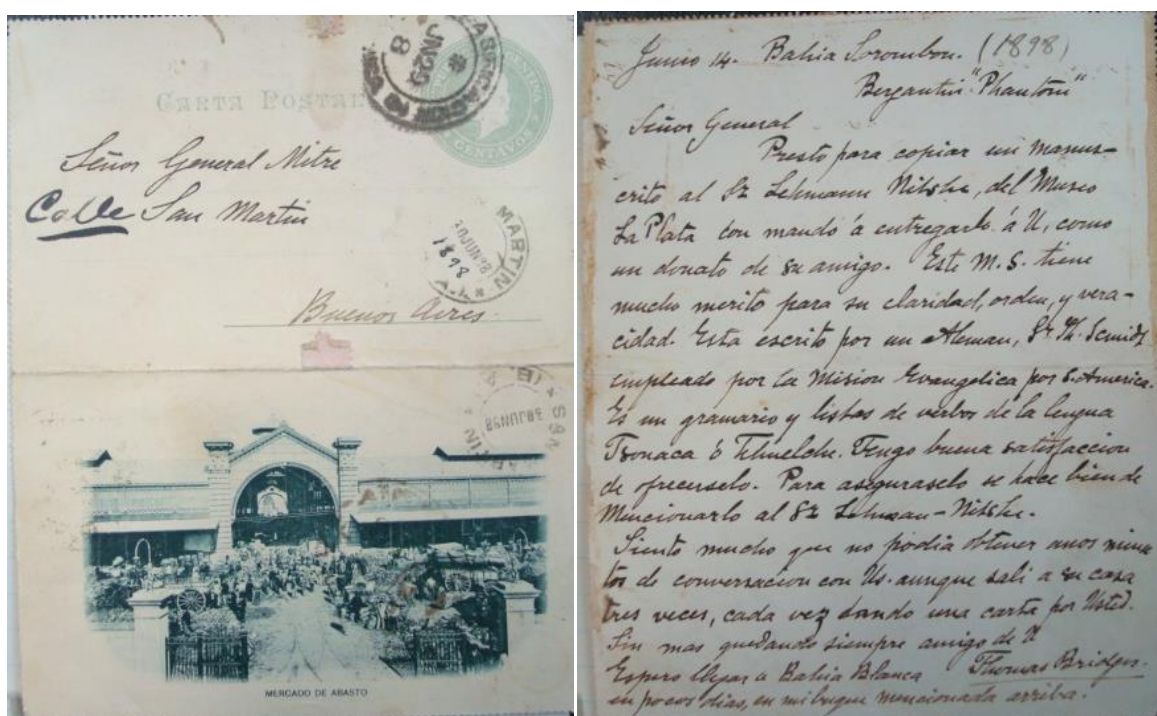 CARTA POSTAL
CENTAVOS
JN 29
8
Señor General Mitre
Calle San Martin
MARTIN
30 JUN 98
1898
Buenos Aires.
SAN
30 JUN 98
MERCADO DE ABASTO
Junio 14. Bahia Sorombon. (1898)
Bergantin "Phantom"
Señor General
Presto para copiar un manus-
crito al Sr Lehmann Nitshe, del Museo
La Plata con mandó á entregarlo á U, como
un donato de su amigo. Este M.S. tiene
mucho merito para su claridad, orden, y vera-
cidad. Esta escrito por un Aleman, Sr Th. Scmidt
empleado por la Mision Evangelica por S. America.
Es un gramario y listas de verbos de la lengua
Tsonaca ó Tehuelche. Tengo buena satisfaccion
de ofrecerselo. Para aseguraselo se hace bien de
Mencionarlo al Sr Lehman-Nitshe.
Siento mucho que no podia obtener unos minu
tos de conversacion con Us. aunque sali a su casa
tres veces, cada vez dando una carta por Usted.
Sin mas quedando siempre amigo de U
Espero llegar a Bahia Blanca Thomas Bridges.
en pocos dias, en mi buque mencionada arriba.